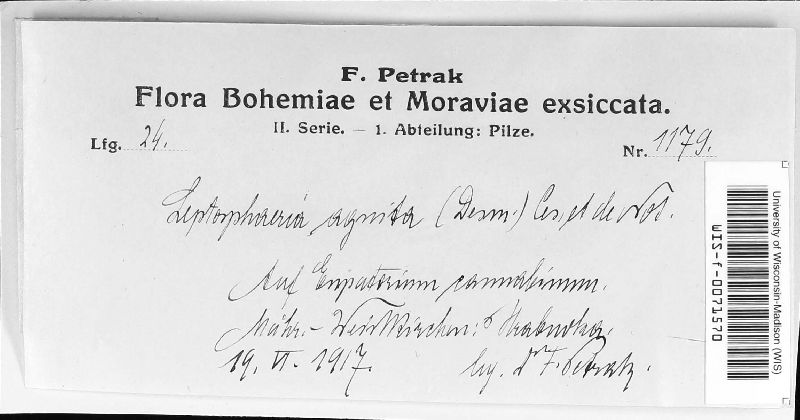 F. Petrak
Flora Bohemiae et Moraviae exsiccata.
II. Serie. — 1. Abteilung: Pilze.
Lfg. 24.
Nr. 1179.
Leptosphaeria agnita (Desm.) Ces. et de Not.
Auf Eupatorium cannabinum.
Mähr.-Weisskirchen:
19. VI. 1917.
leg. Dr F. Petrak.
University of Wisconsin-Madison (WIS)
WIS-f-0071570